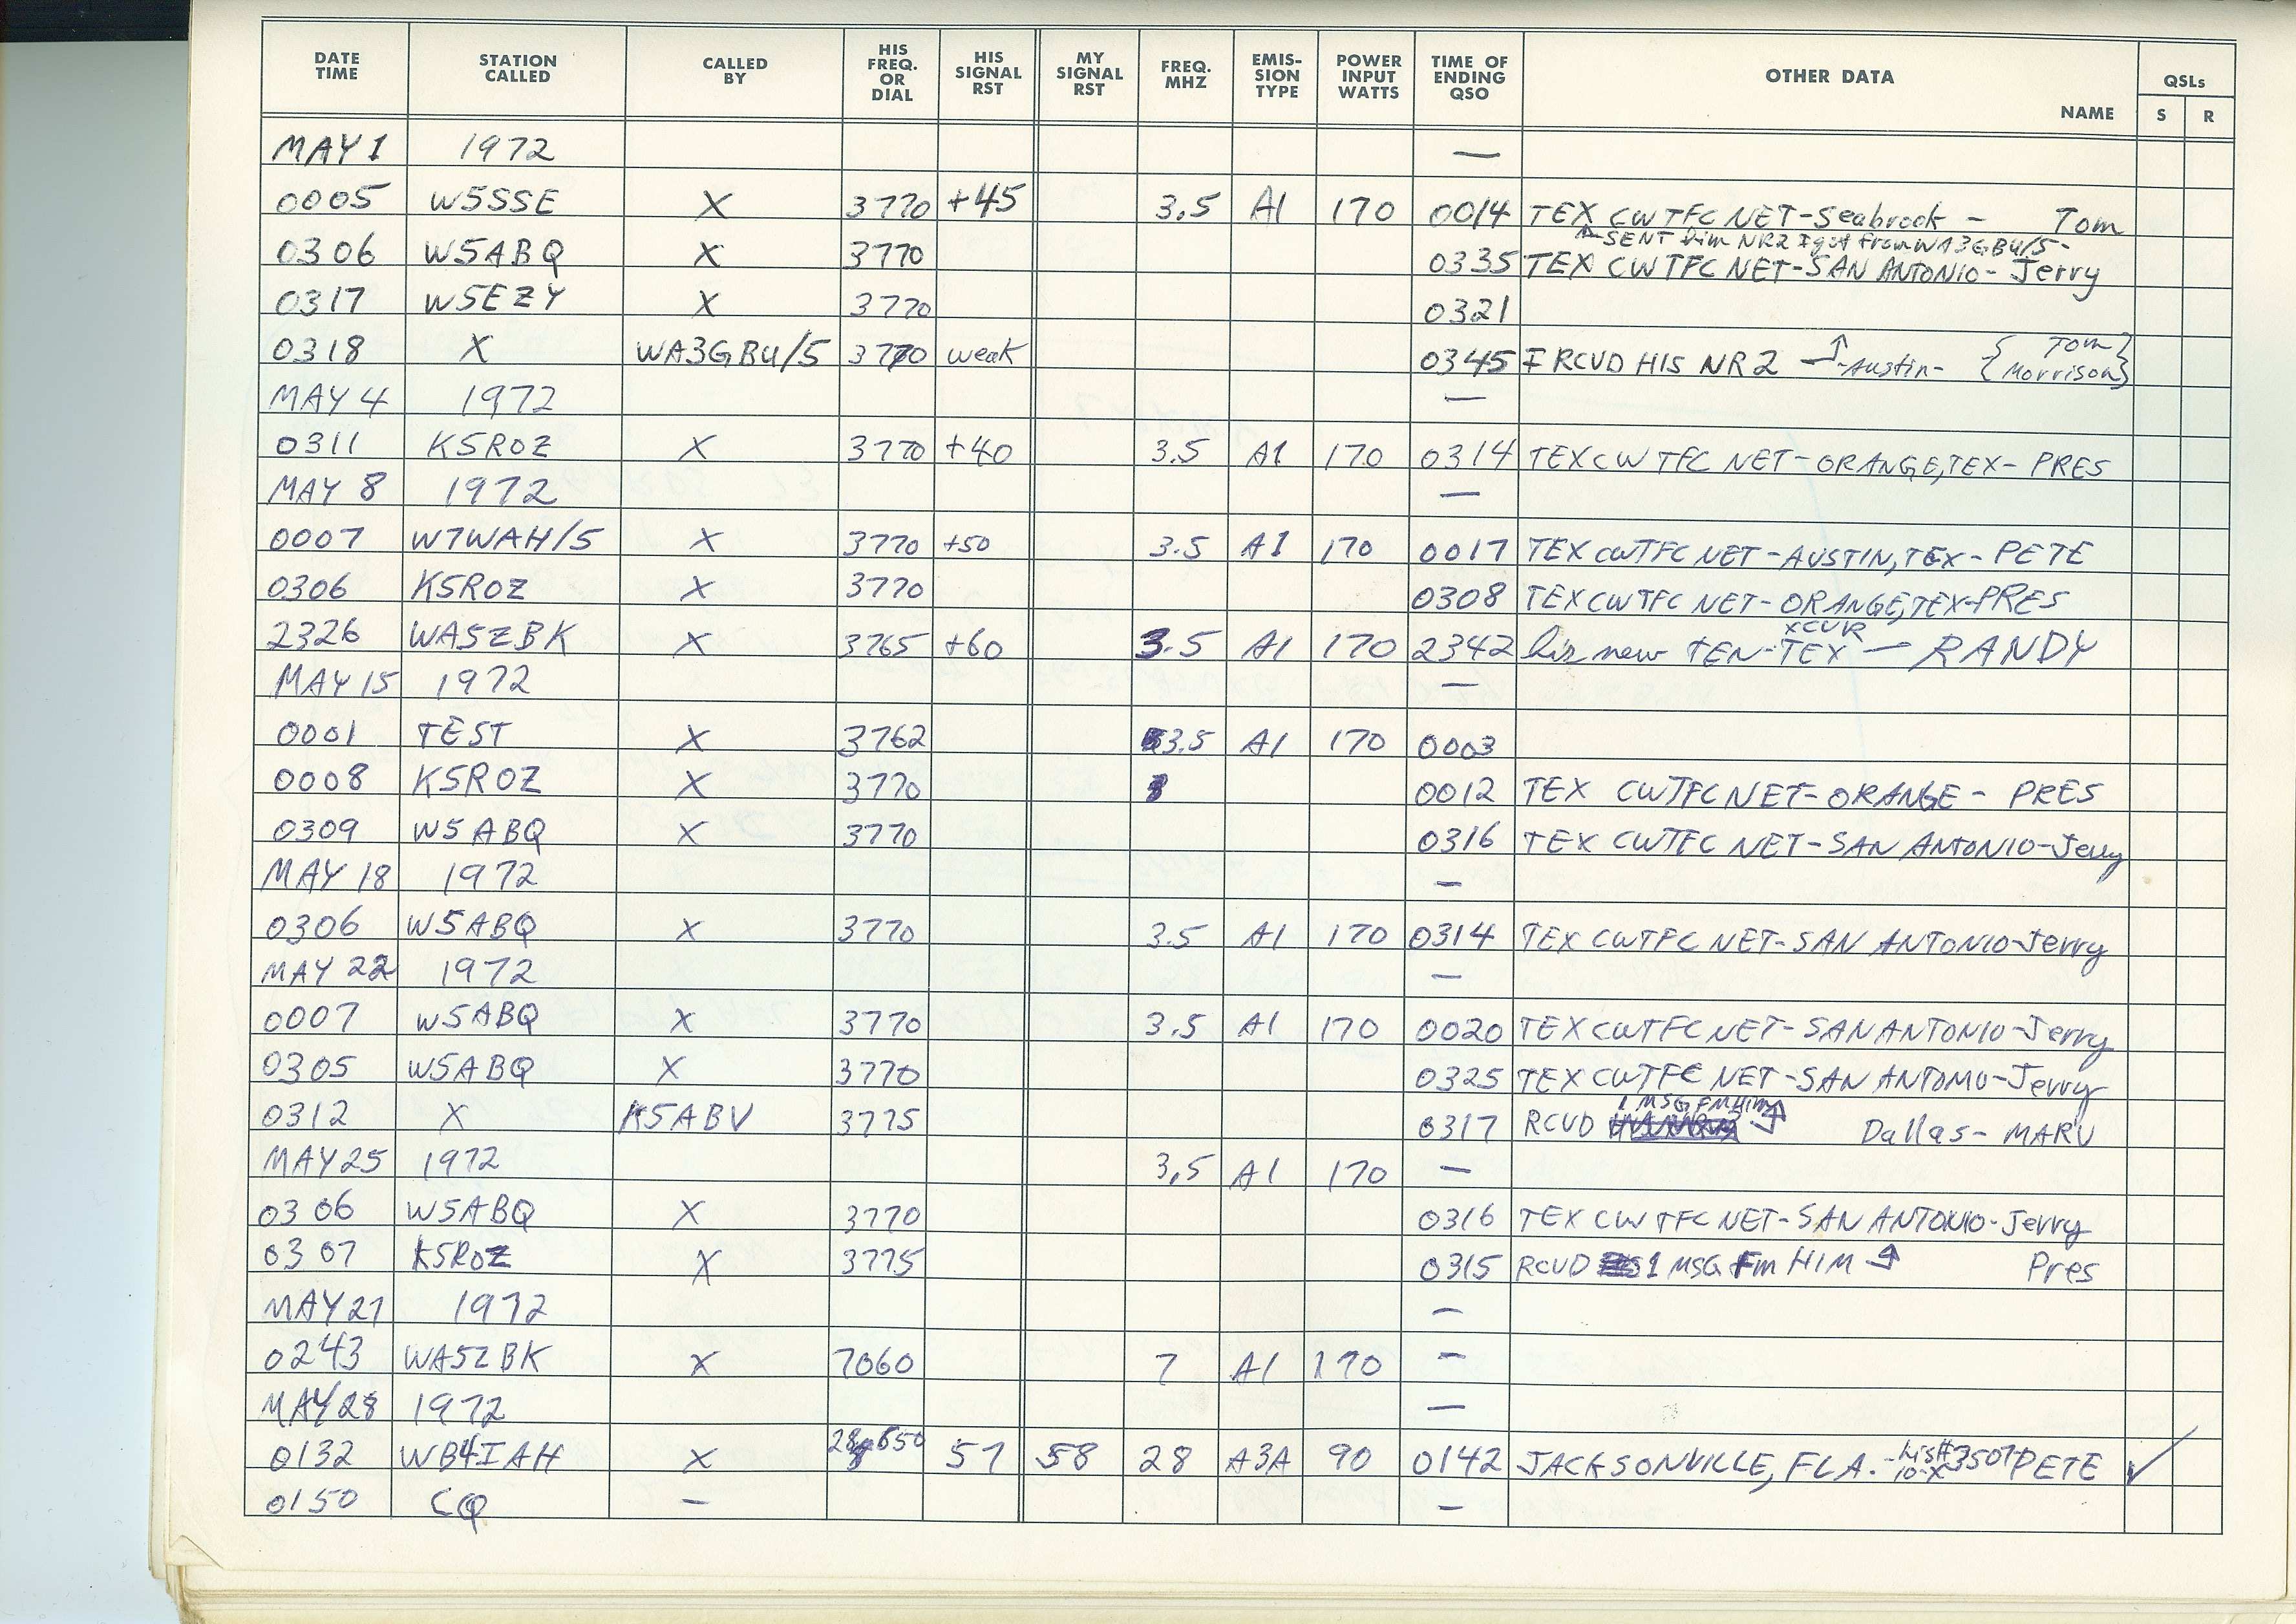 DATE TIME STATION CALLED CALLED BY HIS FREQ. OR DIAL HIS SIGNAL RST MY SIGNAL RST FREQ. MHZ EMIS- SION TYPE POWER INPUT WATTS TIME OF ENDING QSO OTHER DATA NAME QSLs S R
MAY 1 1972 —
0005 W5SSE X 3770 +45 3.5 A1 170 0014 TEX CW TFC NET - Seabrook - Tom
SENT him NR2 I got from WA3GBU/5 -
0306 W5ABQ X 3770 0335 TEX CW TFC NET - SAN ANTONIO - Jerry
0317 W5EZY X 3770 0321
0318 X WA3GBU/5 3770 weak 0345 I RCVD HIS NR2 - Austin - {Tom Morrison}
MAY 4 1972 —
0311 K5ROZ X 3770 +40 3.5 A1 170 0314 TEX CW TFC NET - ORANGE, TEX - PRES
MAY 8 1972 —
0007 W7WAH/5 X 3770 +50 3.5 A1 170 0017 TEX CW TFC NET - AUSTIN, TEX - PETE
0306 K5ROZ X 3770 0308 TEX CW TFC NET - ORANGE, TEX - PRES
2326 WA5ZBK X 3765 +60 3.5 A1 170 2342 his new TEN-TEX XCVR — RANDY
MAY 15 1972 —
0001 TEST X 3762 3.5 A1 170 0003
0008 K5ROZ X 3770 0012 TEX CW TFC NET - ORANGE - PRES
0309 W5ABQ X 3770 0316 TEX CW TFC NET - SAN ANTONIO - Jerry
MAY 18 1972 —
0306 W5ABQ X 3770 3.5 A1 170 0314 TEX CW TFC NET - SAN ANTONIO - Jerry
MAY 22 1972 —
0007 W5ABQ X 3770 3.5 A1 170 0020 TEX CW TFC NET - SAN ANTONIO - Jerry
0305 W5ABQ X 3770 0325 TEX CW TFC NET - SAN ANTONIO - Jerry
0312 X K5ABV 3775 0317 RCVD 1 MSG FM HIM Dallas - MARV
MAY 25 1972 3.5 A1 170 —
0306 W5ABQ X 3770 0316 TEX CW TFC NET - SAN ANTONIO - Jerry
0307 K5ROZ X 3775 0315 RCVD 1 MSG Fm HIM Pres
MAY 27 1972 —
0243 WA5ZBK X 7060 7 A1 170 —
MAY 28 1972 —
0132 WB4IAH X 28,650 57 58 28 A3A 90 0142 JACKSONVILLE, FLA. - his 10-X # 3507 PETE ✓
0150 CQ — —